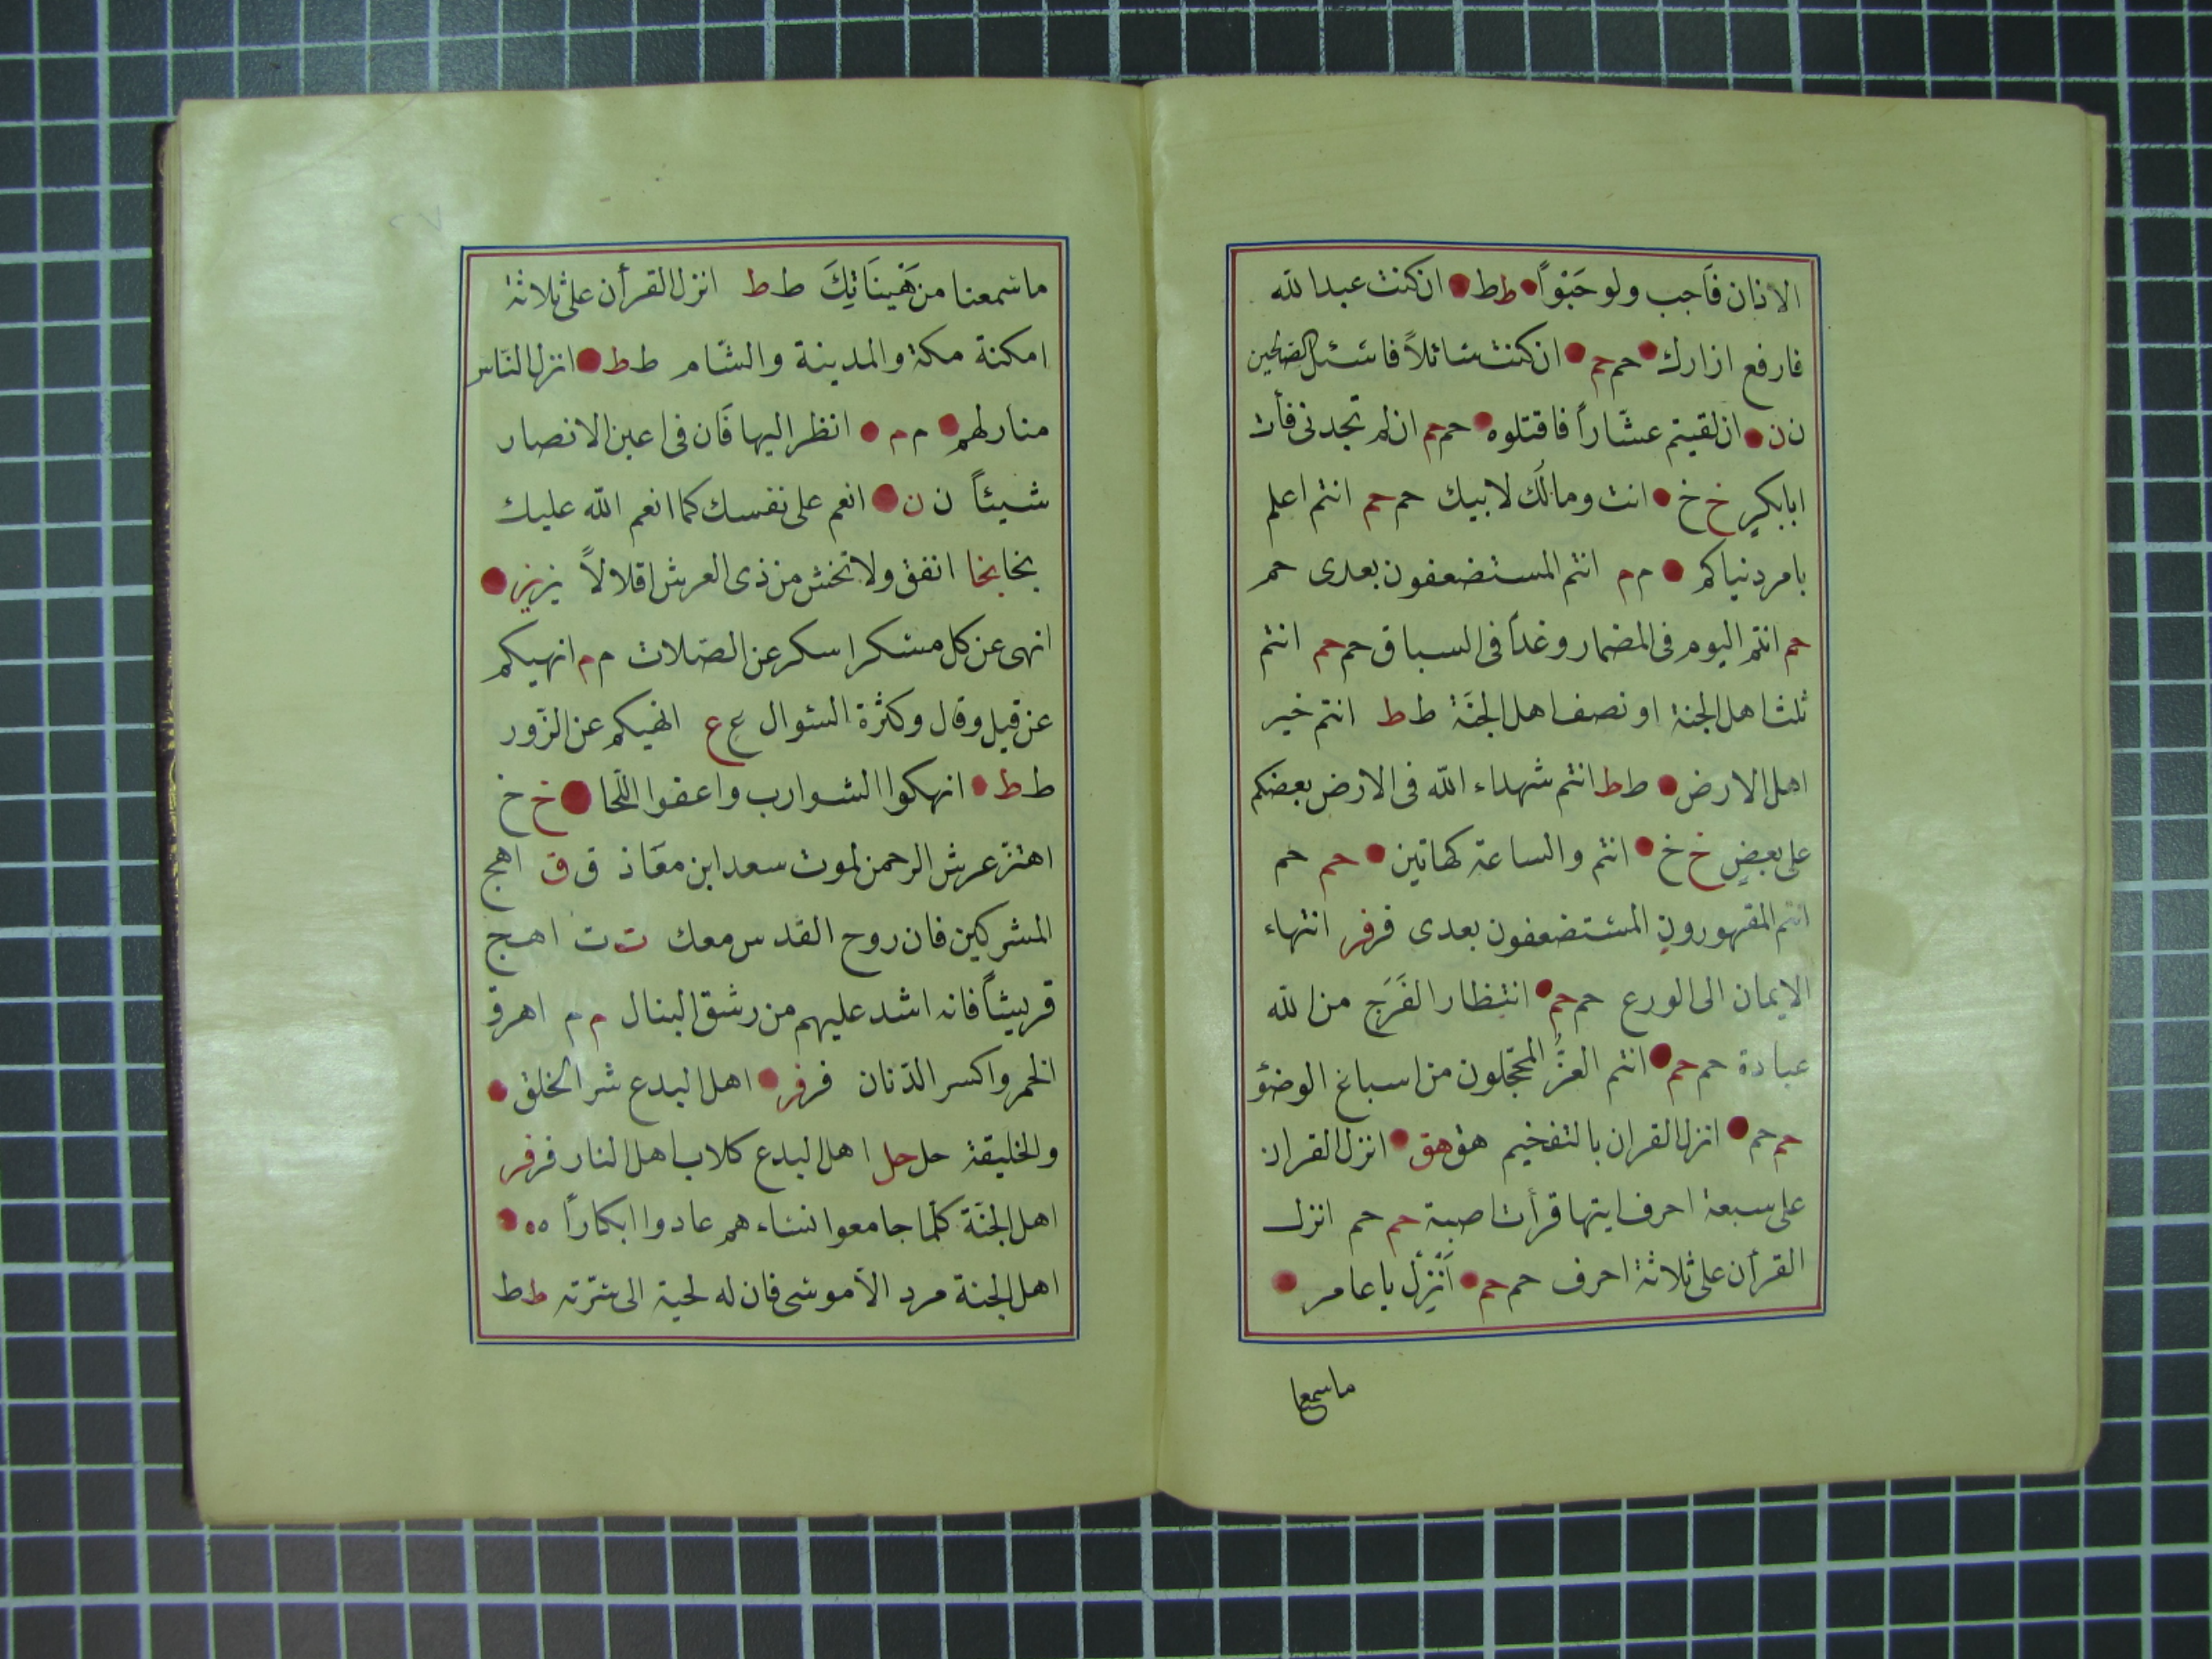 الاذان فَاجب ولو حَبْواً ط ط ان كنت عبد الله
فارفع ازارك حم حم ان كنت سائلاً فاسئل الصالحين
ن ن ان لقيتم عشّاراً فاقتلوه حم حم ان لم تجدنى فأت
ابابكر خ خ انت ومالُك لابيك حم حم انتم اعلم
بامر دنياكم م م انتم المستضعفون بعدى حم
حم انتم اليوم فى المضمار وغداً فى السباق حم حم انتم
ثلث اهل الجنة او نصف اهل الجنَة ط ط انتم خير
اهل الارض ط ط انتم شهداء الله فى الارض بعضكم
على بعضٍ خ خ انتم والساعة كهاتين حم حم
انتم المقهورون المستضعفون بعدى فر فر انتهاء
الايمان الى الورع حم حم انتظار الفَرَج من الله
عبادة حم حم انتم الغرُّ المحجّلون من اسباغ الوضؤ
حم حم انزل القران بالتفخيم هق هق انزل القران
على سبعة احرف ايتها قرأت اصبة حم حم انزل
القرأن على ثلاثة احرف حم حم اَنْزِلْ ياعامر
ماسمعنا
ماسمعنا من هَنينَاتِكَ ط ط انزل القرأن على ثلاثة
امكنة مكة والمدينة والشّام ط ط انزل النّاس
منازلهم م م انظر اليها فَان فى اعين الانصار
شيئاً ن ن انعم على نفسك كما انعم الله عليك
بخا بخا انفق ولا تخش من ذى العرش اقلالاً بز بز
انهى عن كل مسكر اسكر عن الصّلات م م انهيكم
عن قيل وقال وكثرة السّوال ع ع انهيكم عن الزّور
ط ط انهكوا الشوارب واعفوا اللّحا خ خ
اهتزّ عرش الرحمن لموت سعد ابن معَاذ ق ق اهج
المشركين فان روح القدس معك ت ت اهج
قريشاً فانه اشد عليهم من رشق النبال م م اهرق
الخمر واكسر الدّنان فر فر اهل البدع شر الخلق
والخليقة حل حل اهل البدع كلاب اهل النار فر فر
اهل الجنّة كلّما جامعوا نساءهم عادوا ابكاراً ه ه
اهل الجنة مرد الاّ موسى فان له لحية الى سرّته ط ط